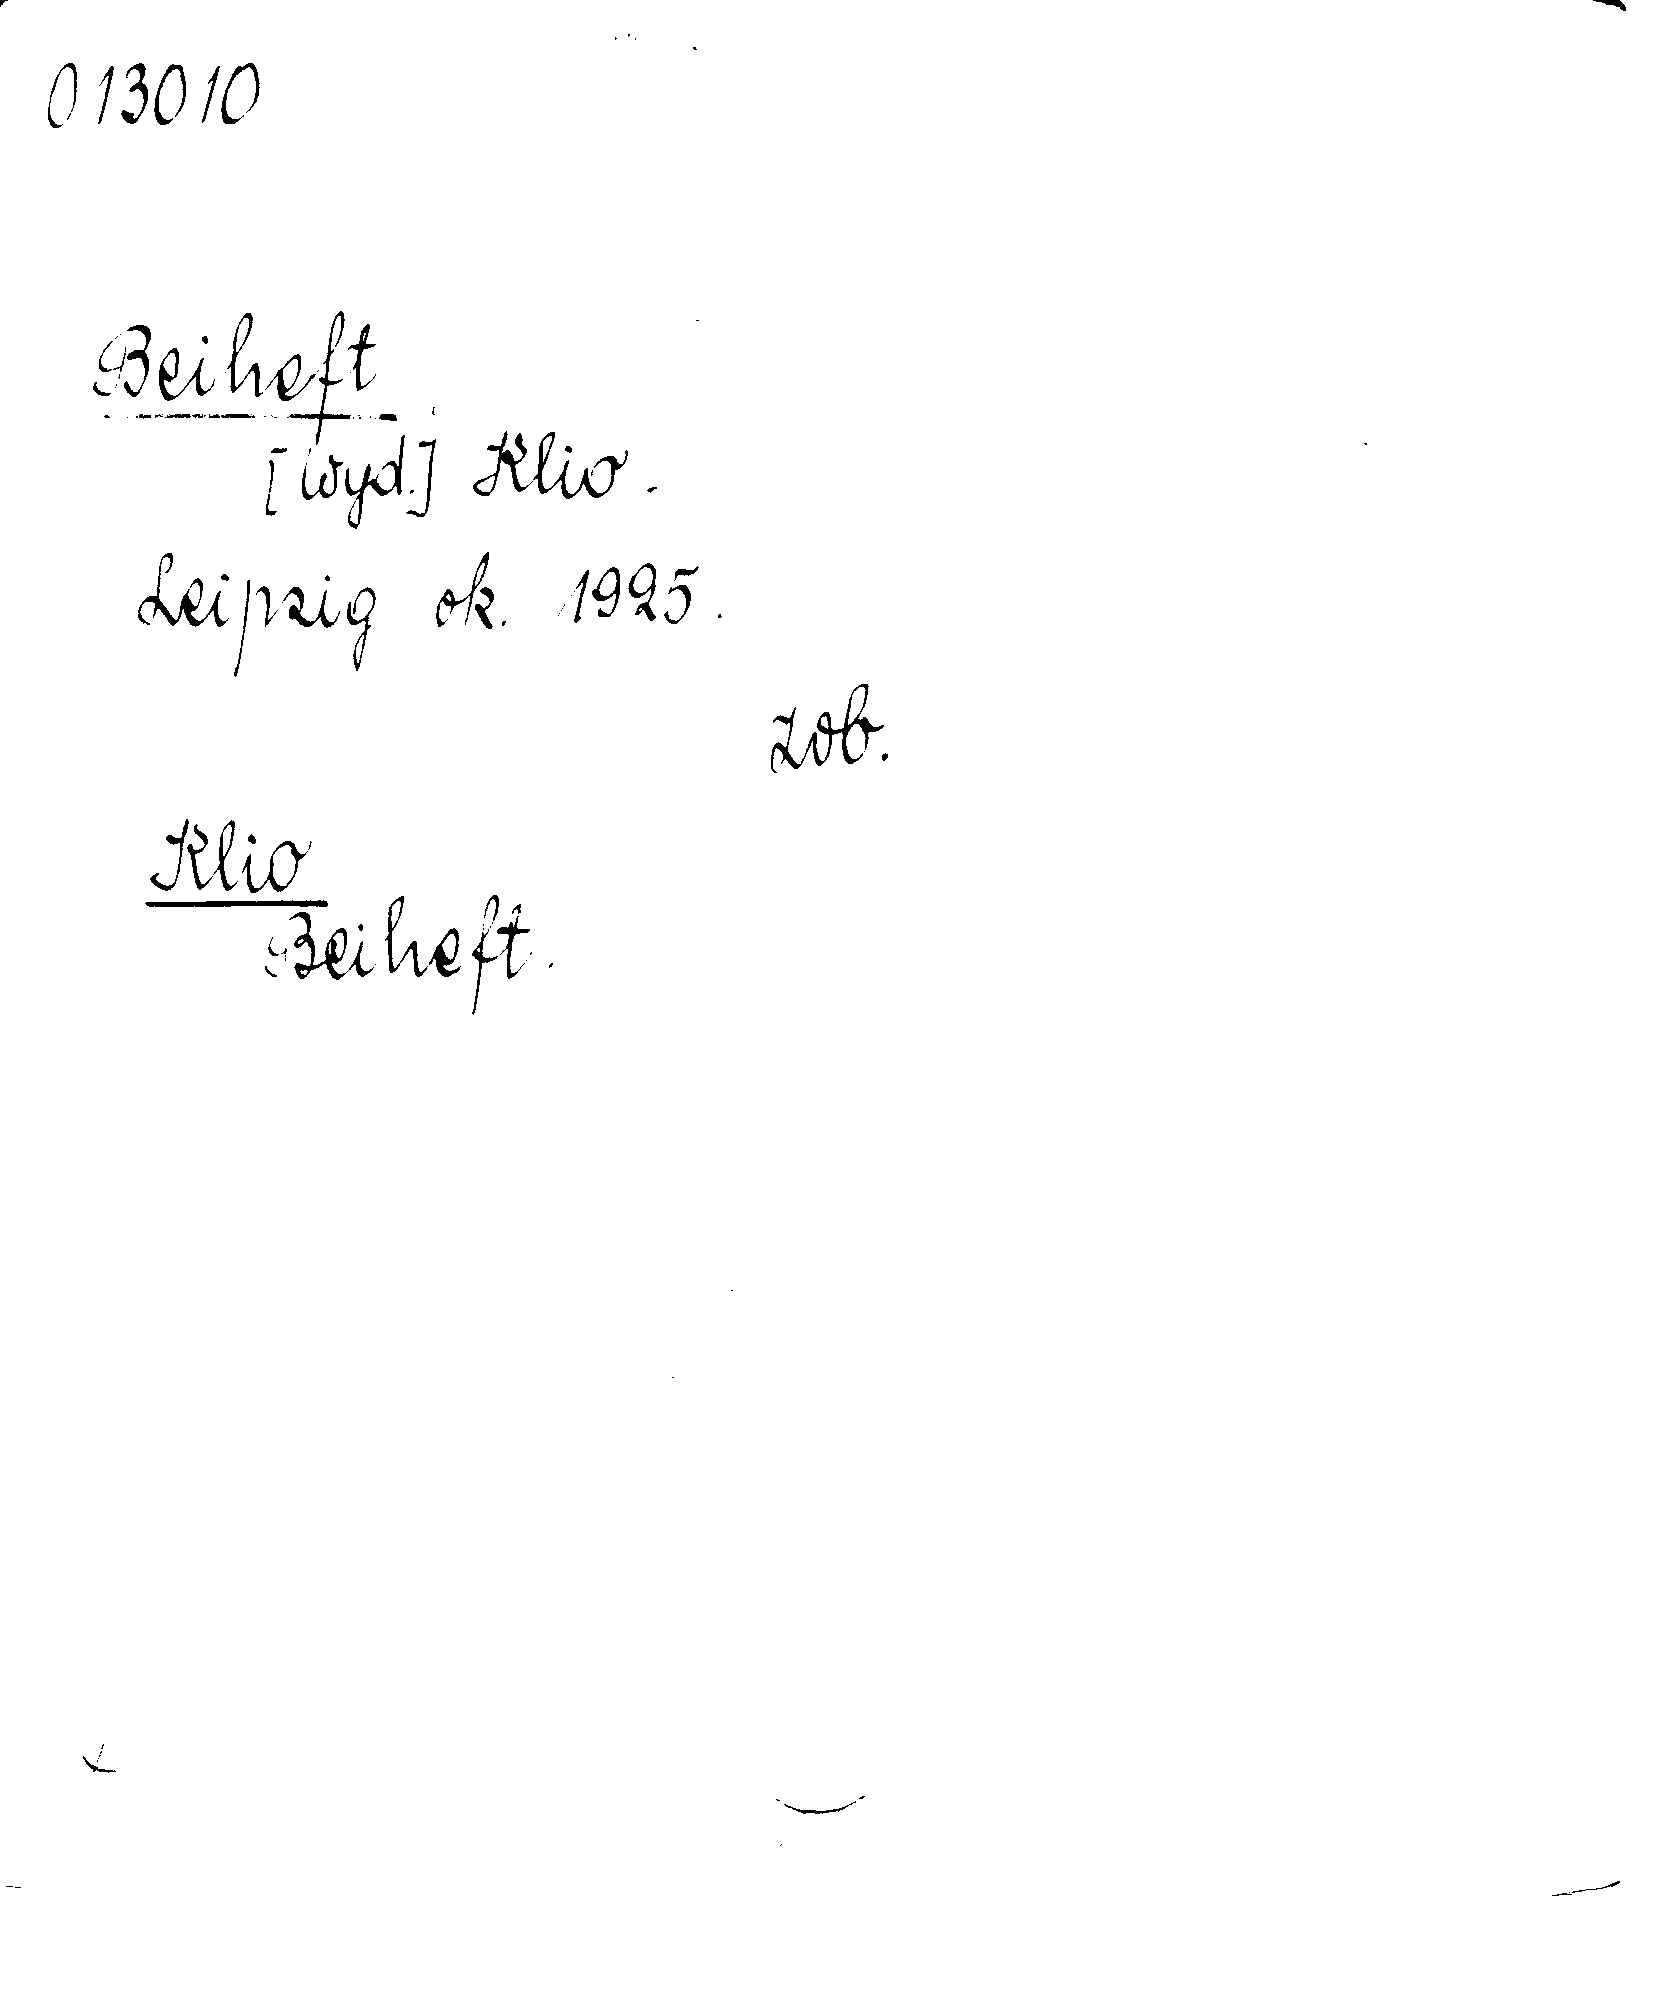 013010
Beiheft
[wyd.] Klio.
Leipzig ok. 1925.
zob.
Klio
Beiheft.